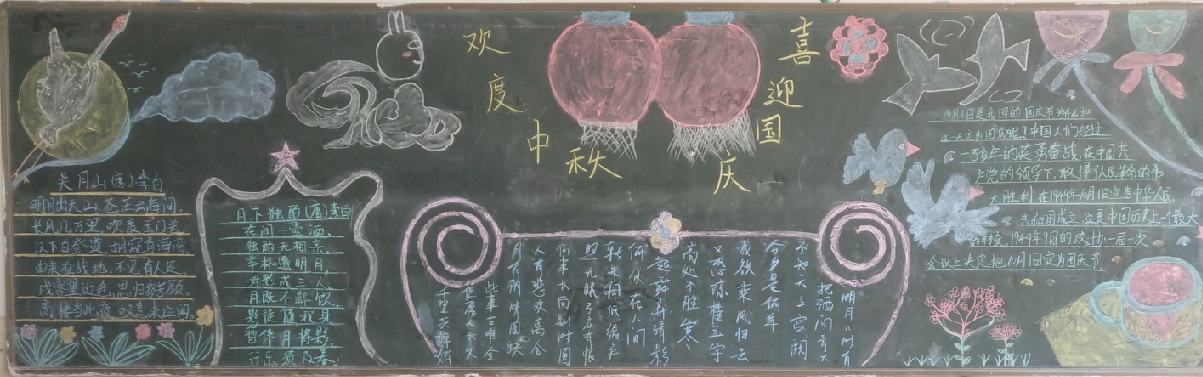 欢度中秋
喜迎国庆
关月山(唐)李白
明月出天山,苍茫云海间
长风几万里,吹度玉门关
汉下白登道,胡窥青海湾
由来征战地,不见有人还
戍客望边色,思归多苦颜
高楼当此夜,叹息未应闲
月下独酌(唐)李白
花间一壶酒
独酌无相亲
举杯邀明月
对影成三人
月既不解饮
影徒随我身
暂伴月将影
行乐须及春
明月几时有
把酒问青天
不知天上宫阙
今夕是何年
我欲乘风归去
又恐琼楼玉宇
高处不胜寒
起舞弄清影
何似在人间
转朱阁低绮户
照无眠不应有恨
何事长向别时圆
人有悲欢离合
月有阴晴圆缺
此事古难全
但愿人长久
千里共婵娟
10月1日是我国的国庆节为什么把
这一天定为国庆呢?中国人们经过
一百多年的英勇奋战,在中国共
产党的领导下,取得人民革命的伟
大胜利,在1949年10月1日宣告中华人民
共和国成立,这是中国历史上一个最大
的转变,1949年9月的政协一届一次
会议上决定把10月1日定为国庆节